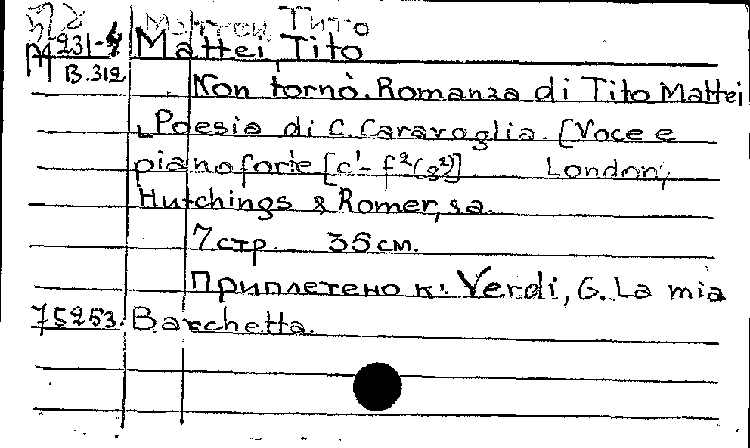 Маттеи Тито
М 231-4 Mattei, Tito
В.312
Non tornò. Romanza di Tito Mattei
Poesia di C. Caravoglia. [Voce e
pianoforte [c¹- f²(g²)] London,
Hutchings & Romer, s.a.
7 стр. 35 см.
Приплетено к: Verdi, G. La mia
75253. Barchetta.